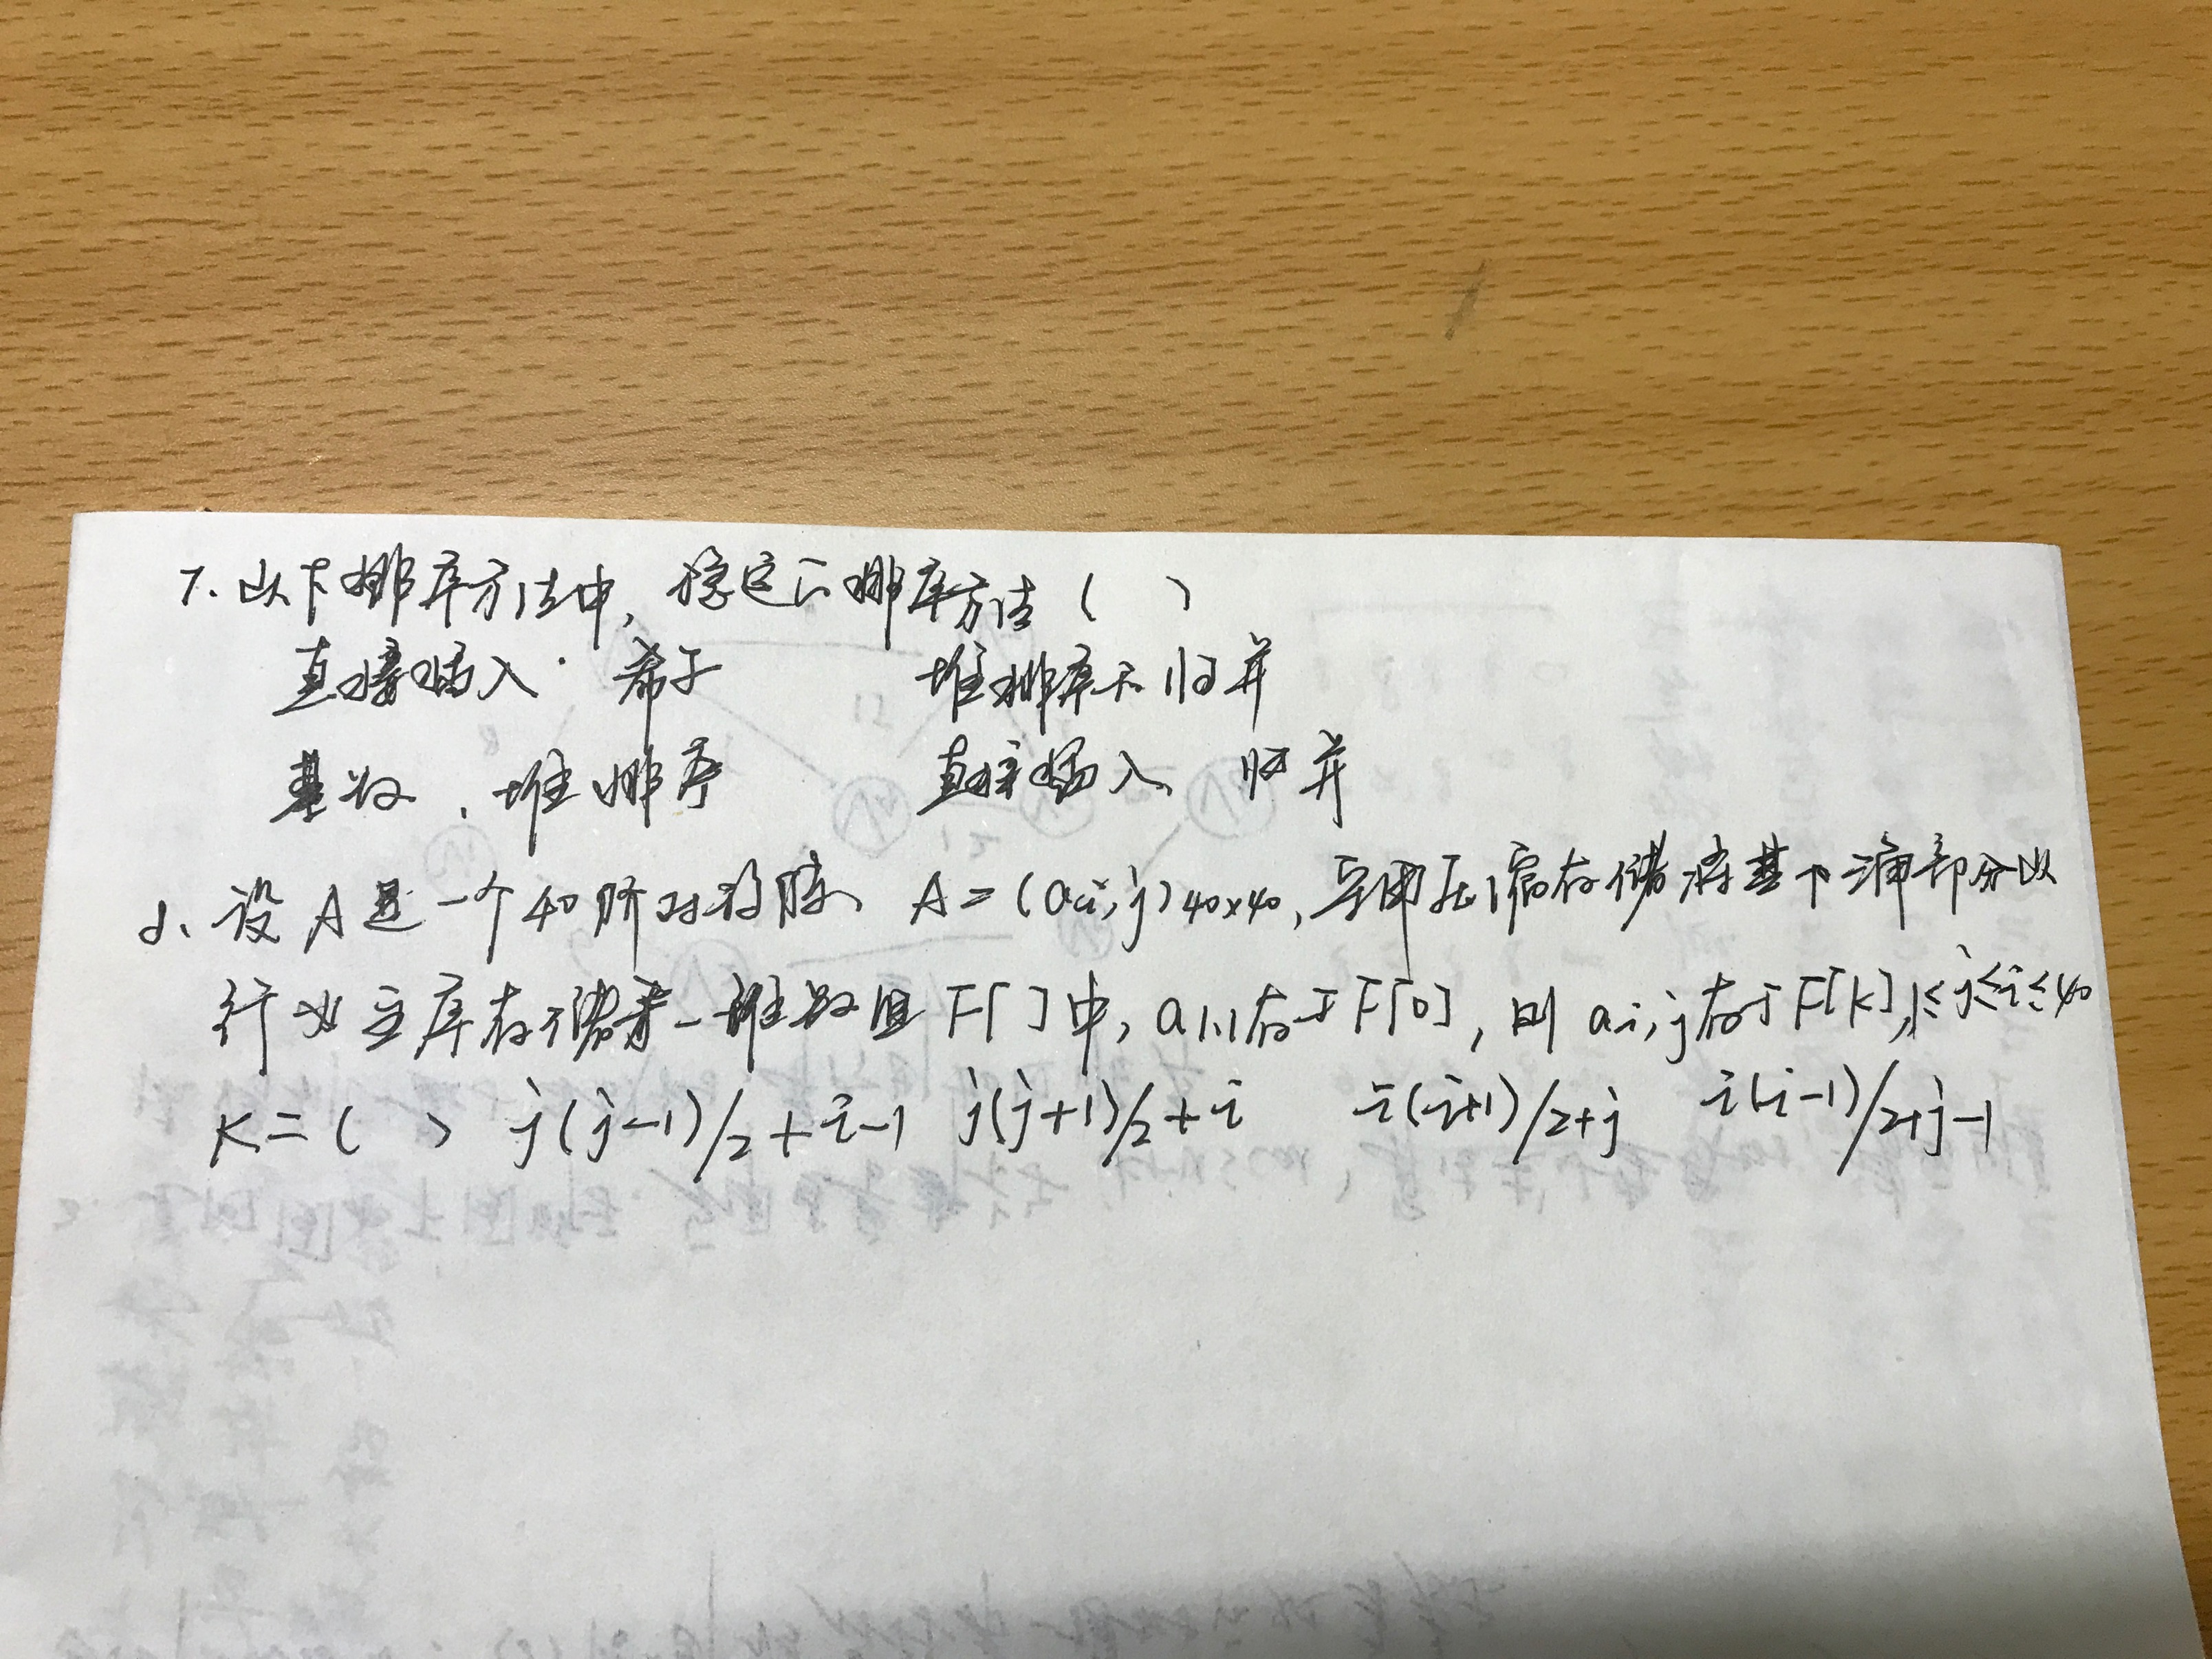 7. 以下排序方法中, 稳定的排序方法 ( )
直接插入. 希尔 堆排序和归并
基数、堆排序 直接插入、归并
8、设A是一个40阶对称阵、A=(ai,j)40×40, 压缩存储 将其下三角部分以
行为主序存储于一维数组F[ ]中, a1,1存于F[0], 则 ai,j存于F[K], 1≤j≤i≤40
K=( ) j(j-1)/2+i-1 j(j+1)/2+i i(i+1)/2+j i(i-1)/2+j-1